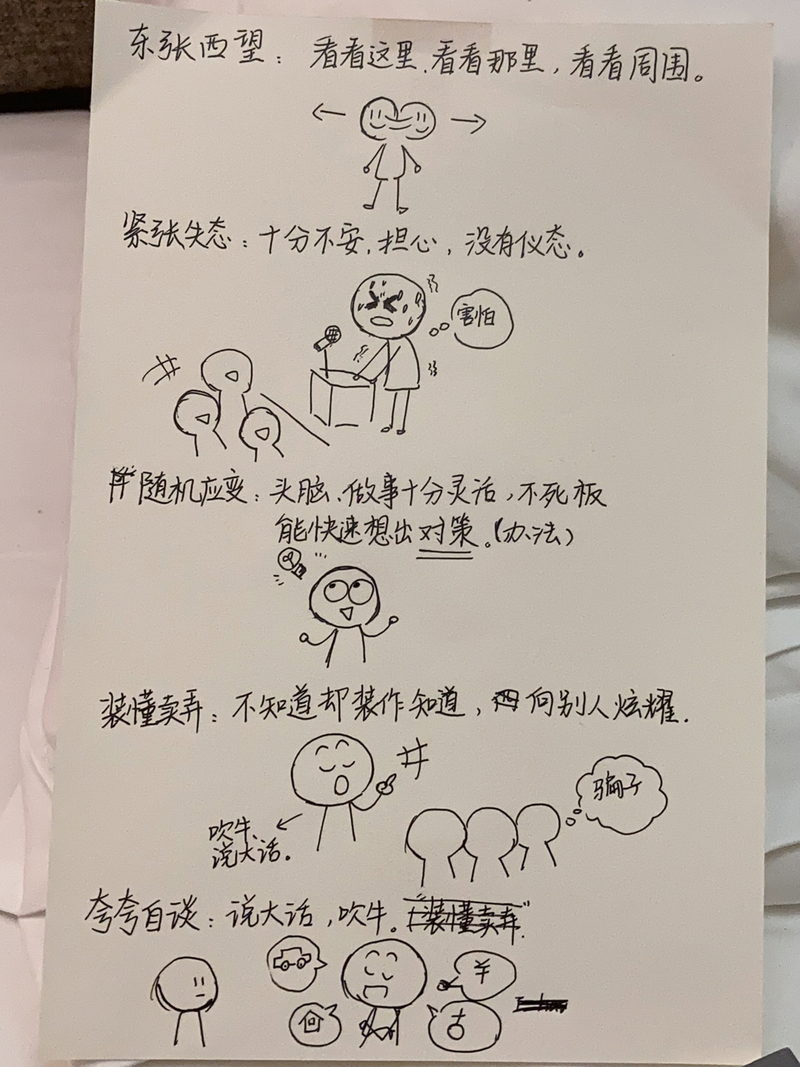 东张西望：看看这里、看看那里，看看周围。
紧张失态：十分不安，担心，没有仪态。
害怕
随机应变：头脑、做事十分灵活，不死板
能快速想出对策。（办法）
装懂卖弄：不知道却装作知道，向别人炫耀.
骗子
吹牛、
说大话。
夸夸自谈：说大话，吹牛。“装懂卖弄”
¥